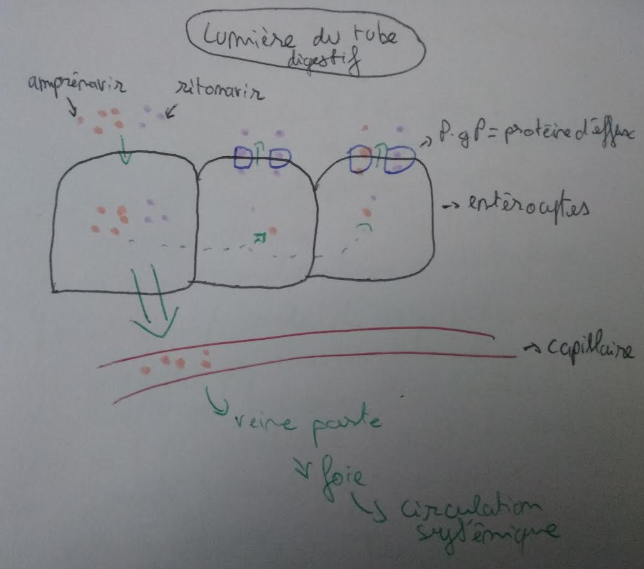 Lumière du tube
digestif
amprénavir
ritonavir
P.gP = protéine d'efflux
entérocytes
capillaire
veine porte
foie
circulation
systémique